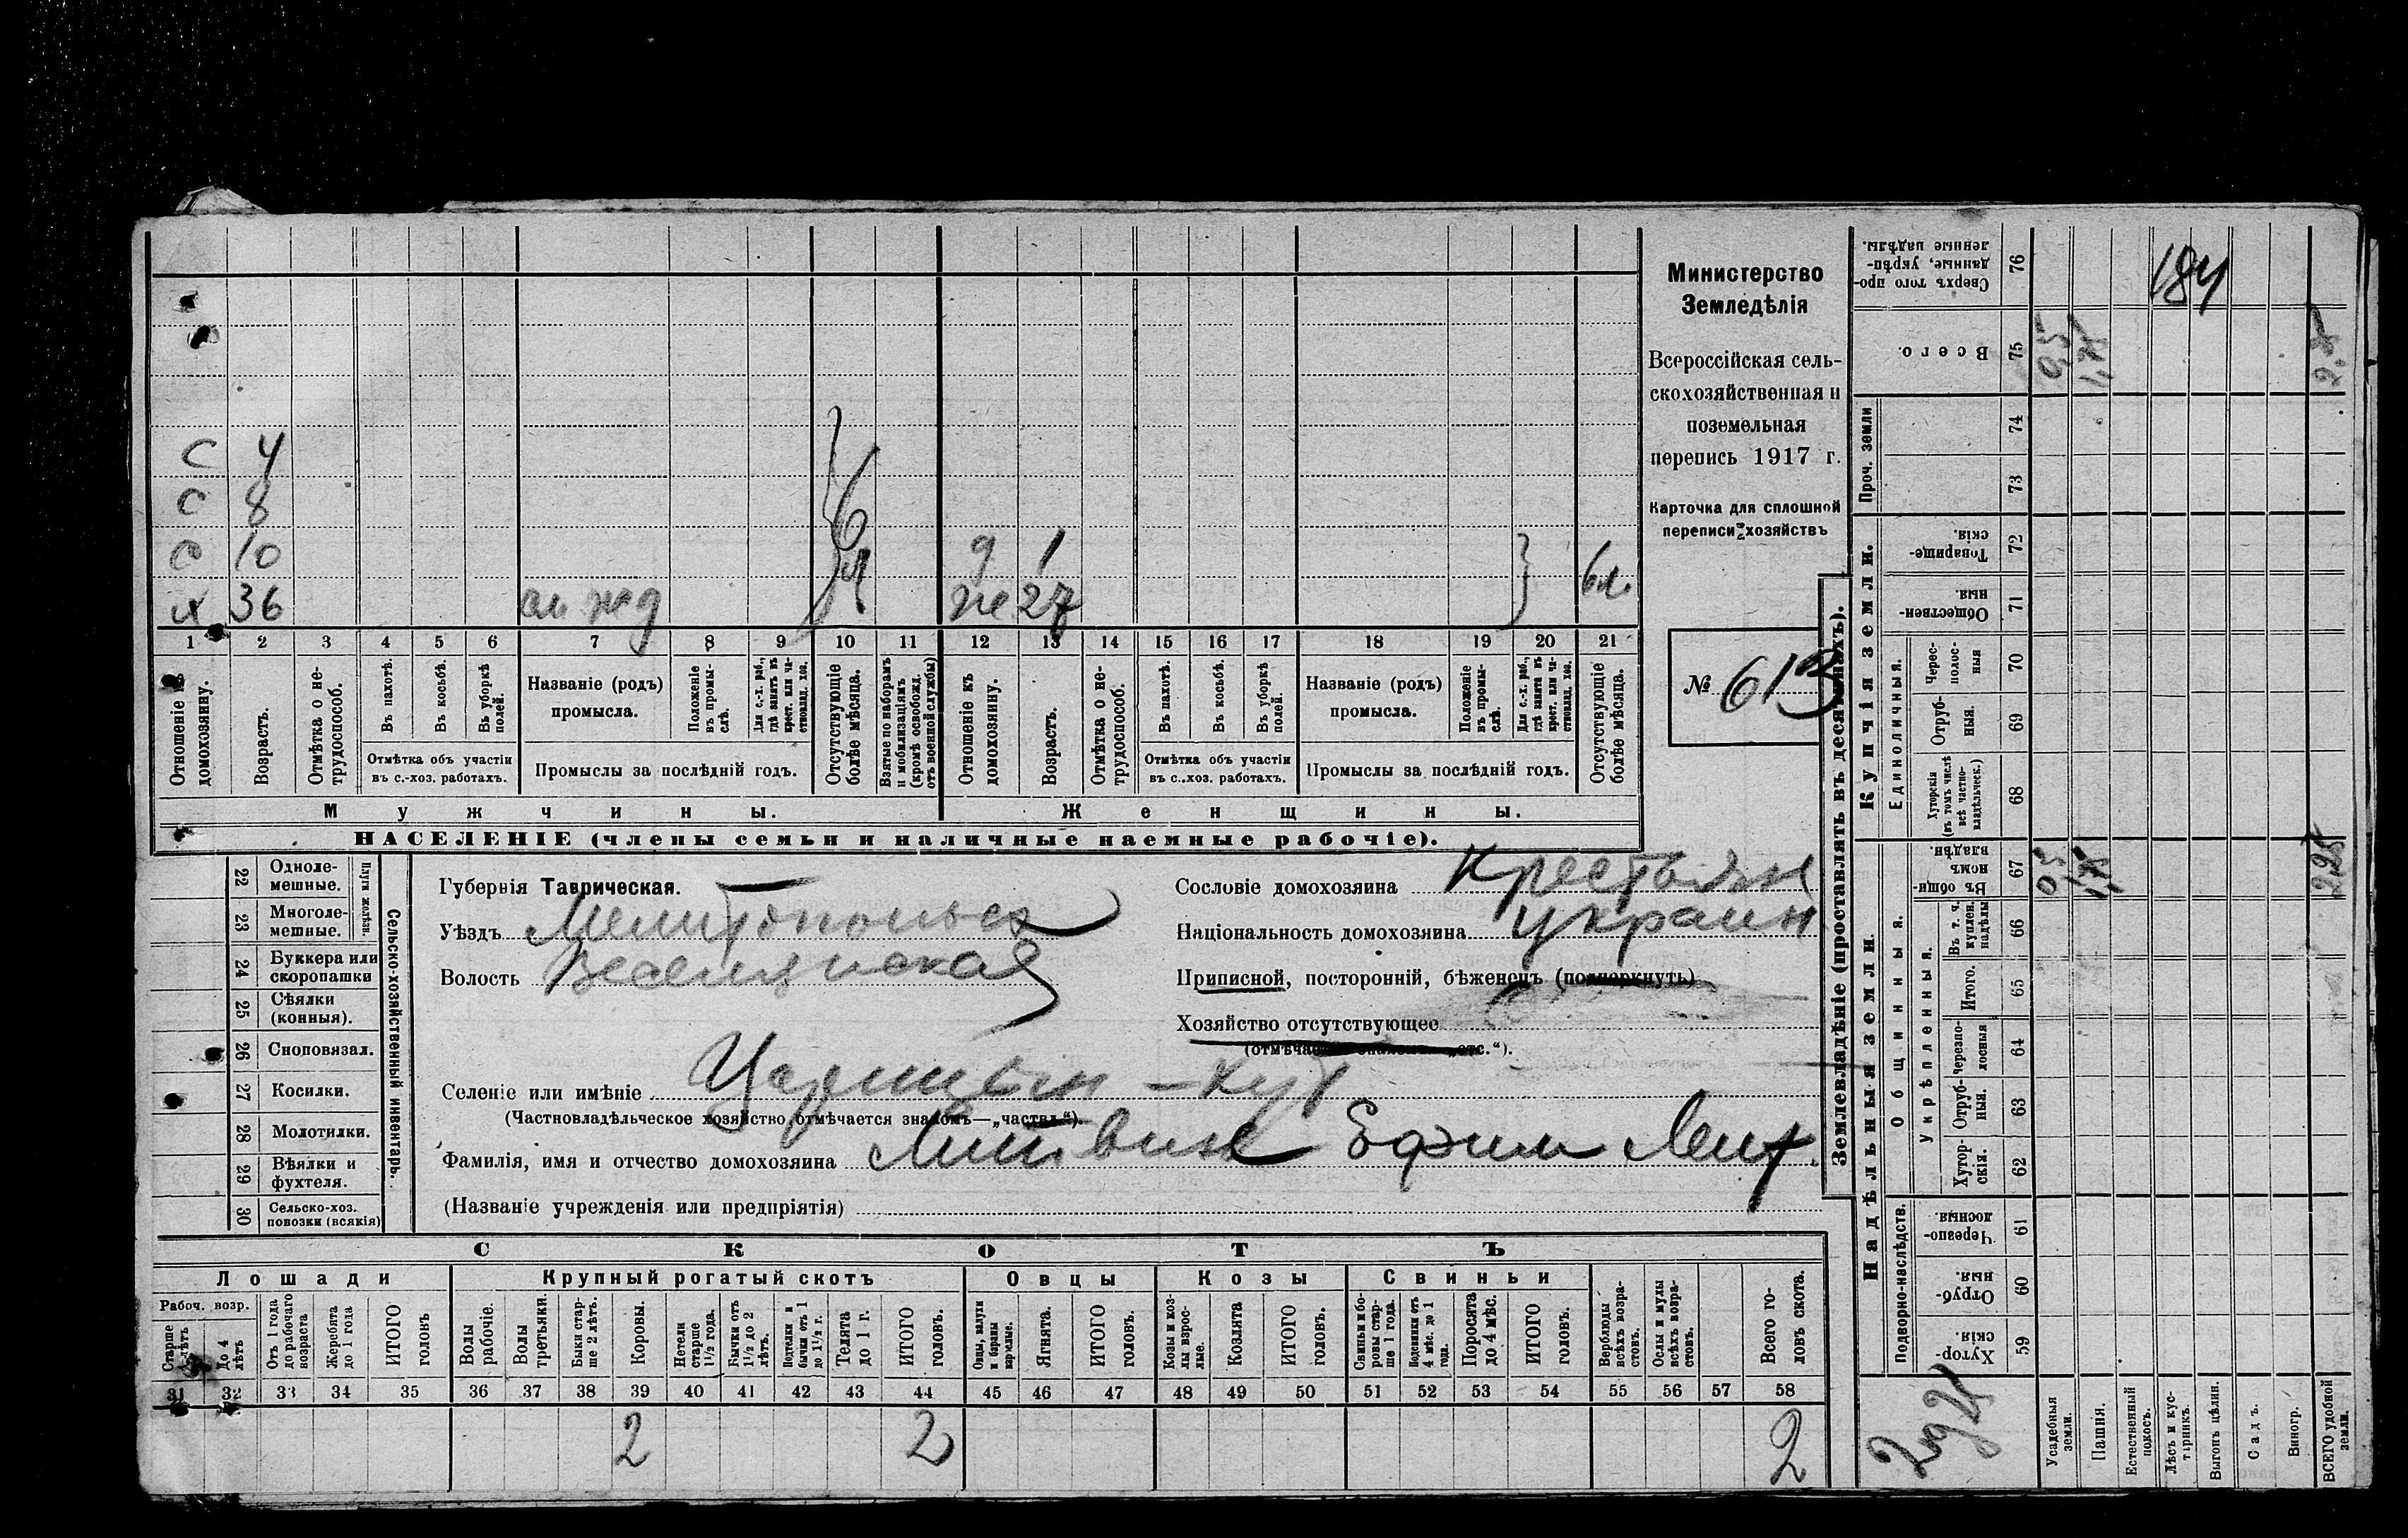 Министерство
Земледѣлія
Всероссійская сель-
скохозяйственная и
поземельная
перепись 1917 г.
Карточка для сплошной
переписи хозяйствъ
№ 613
С 4
С 8
С 10
х 36 ж д
д 1
же 27
1 2 3 4 5 6 7 8 9 10 11 12 13 14 15 16 17 18 19 20 21
Отношеніе къ домохозяину.
Возрастъ.
Отмѣтка о не-трудоспособ.
Въ пахотѣ.
Въ косьбѣ.
Въ уборкѣ полей.
Отмѣтка объ участіи въ с.-хоз. работахъ.
Названіе (родъ) промысла.
Положеніе въ промы-слѣ.
Для с.-х. раб., гдѣ занятъ въ крест. или ча-стновлад. хоз.
Промыслы за послѣдній годъ.
Отсутствующіе болѣе мѣсяца.
Взятые по наборамъ и мобилизаціямъ (кромѣ освобожд. отъ военной службы)
Отношеніе къ домохозяину.
Возрастъ.
Отмѣтка о не-трудоспособ.
Въ пахотѣ.
Въ косьбѣ.
Въ уборкѣ полей.
Отмѣтка объ участіи въ с.-хоз. работахъ.
Названіе (родъ) промысла.
Положеніе въ промы-слѣ.
Для с.-х. раб., гдѣ занята въ крест. или ча-стновлад. хоз.
Промыслы за послѣдній годъ.
Отсутствующіе болѣе мѣсяца.
Мужчины. Женщины.
НАСЕЛЕНІЕ (члены семьи и наличные наемные рабочіе).
Сельско-хозяйственный инвентарь.
Плуги желѣзн.
22 Одноле-мешные.
23 Многоле-мешные.
24 Буккера или скоропашки
25 Сѣялки (конныя).
26 Сноповязал.
27 Косилки.
28 Молотилки.
29 Вѣялки и фухтеля.
30 Сельско-хоз. повозки (всякія)
Губернія Таврическая.
Уѣздъ Мелитопольск
Волость Веселянская
Сословіе домохозяина Крестьян
Національность домохозяина украин
Приписной, посторонній, бѣженецъ (подчеркнуть)
Хозяйство отсутствующее
(отмѣчается знакомъ „отс.“).
Селеніе или имѣніе Царицын - хут
(Частновладѣльческое хозяйство отмѣчается знакомъ—„частвл.“).
Фамилія, имя и отчество домохозяина Литвин Ефим
(Названіе учрежденія или предпріятія)
СКОТЪ
Лошади Крупный рогатый скотъ Овцы Козы Свиньи
Рабоч. возр.
Старше 4 лѣтъ
До 4 лѣтъ
Отъ 1 года до рабочаго возраста
Жеребята до 1 года
ИТОГО головъ
Волы рабочіе.
Волы третьяки.
Быки стар-ше 2 лѣтъ.
Коровы.
Нетели старше 1½ года.
Бычки отъ 1½ до 2 лѣтъ.
Подтелки и бычки отъ 1 до 1½ г.
Телята до 1 г.
ИТОГО головъ.
Овцы, валухи и бараны взрослые.
Ягнята.
ИТОГО головъ.
Козы и коз-лы взрос-лые.
Козлята
ИТОГО головъ.
Свиньи и бо-ровы стар-ше 1 года.
Подсвинки отъ 4 мѣс. до 1 года.
Поросята до 4 мѣс.
ИТОГО головъ.
Верблюды всѣхъ возра-стовъ.
Ослы и мулы всѣхъ возра-стовъ.
Всего го-ловъ скота.
31 32 33 34 35 36 37 38 39 40 41 42 43 44 45 46 47 48 49 50 51 52 53 54 55 56 57 58
2 2 2
Землевладѣніе (проставлять въ десятинахъ).
Надѣльныя земли. Купчія земли. Проч. земли
Подворно-наслѣдств.
Общинныя.
Укрѣпленныя.
Единоличныя.
Хутор-скія. 59
Отруб-ныя. 60
Черезпо-лосныя 61
Хутор-скія. 62
Отруб-ныя. 63
черезпо-лосныя 64
Итого. 65
Въ т. ч. куплен. надѣлы 66
Въ общин-номъ владѣн. 67
Хуторскія (въ томъ числѣ всѣ частно-владѣльческ.) 68
Отруб-ныя. 69
Черес-полос-ныя 70
Обществен-ныя. 71
Товарище-скія. 72
73
74
Всего. 75
Сверхъ того про-данные, укрѣп-ленные надѣлы. 76
184
Усадебныя земли.
Пашня.
Естественный покосъ.
Лѣсъ и кус-тарникъ.
Выгонъ цѣлин.
Садъ.
Виногр.
ВСЕГО удобной земли.